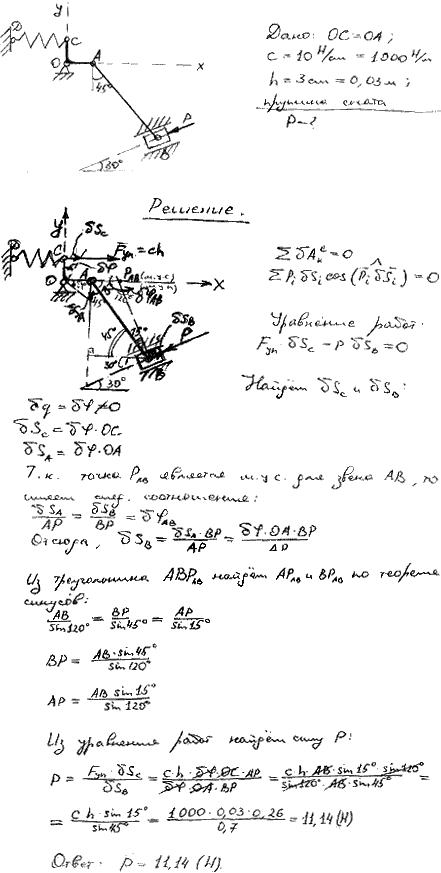 y
D
C
O
A
x
45°
P
B
30°
Дано: OC = OA;
c = 10 Н/см = 1000 Н/м
h = 3 см = 0,03 м;
пружина сжата
P - ?
Решение.
y
D
δSc
C
Fуп = ch
δφ
O
A
P_AB (м.ц.с.)
x
δφ_AB
45°
75°
δS_B
P
30°
B
30°
Σ δA_k^e = 0
Σ Pi δSi cos(Pi ^ δSi) = 0
Уравнение работ:
Fуп · δSc - P δS_B = 0
Найдём δSc и δS_B:
δq = δφ ≠ 0
δSc = δφ · OC
δS_A = δφ · OA
Т.к. точка P_AB является м.ц.с. для звена AB, то
имеет след. соотношение:
δS_A / AP = δS_B / BP = δφ_AB
Отсюда, δS_B = δS_A · BP / AP = δφ · OA · BP / AP
Из треугольника ABP_AB найдём AP_AB и BP_AB по теореме
синусов:
AB / sin 120° = BP / sin 45° = AP / sin 15°
BP = AB · sin 45° / sin 120°
AP = AB sin 15° / sin 120°
Из уравнения работ найдём силу P:
P = Fуп · δSc / δS_B = c h · δφ · OC · AP / δφ · OA · BP = c h · AB · sin 15° · sin 120° / sin 120° · AB · sin 45° =
= c h · sin 15° / sin 45° = 1000 · 0,03 · 0,26 / 0,7 = 11,14 (Н)
Ответ: P = 11,14 (Н).